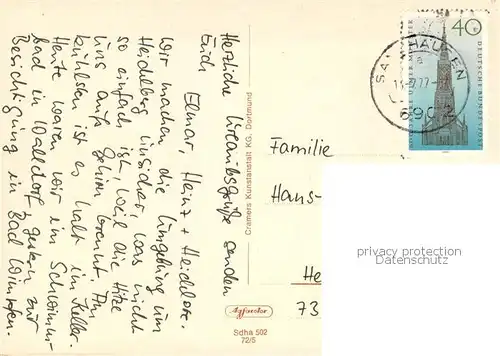 Herzliche Urlaubsgrüße senden
Euch Elmar, Heinz + Heidelore.
Wir machen die Umgebung um
Heidelberg unsicher, was nicht
so einfach ist, weil die Hitze
uns aufs Gehirn brennt. Am
kühlsten ist es halt im Keller.
Heute waren wir im Schwimm-
bad in Walldorf, gestern zur
Besichtigung in Bad Wimpfen.
Cramers Kunstanstalt KG, Dortmund
Agfacolor
Sdha 502
72/5
40
DEUTSCHE BUNDESPOST
JAHRE ULMER MÜNSTER
SANDHAUSEN
Familie
Hans-
He
73
privacy protection
Datenschutz